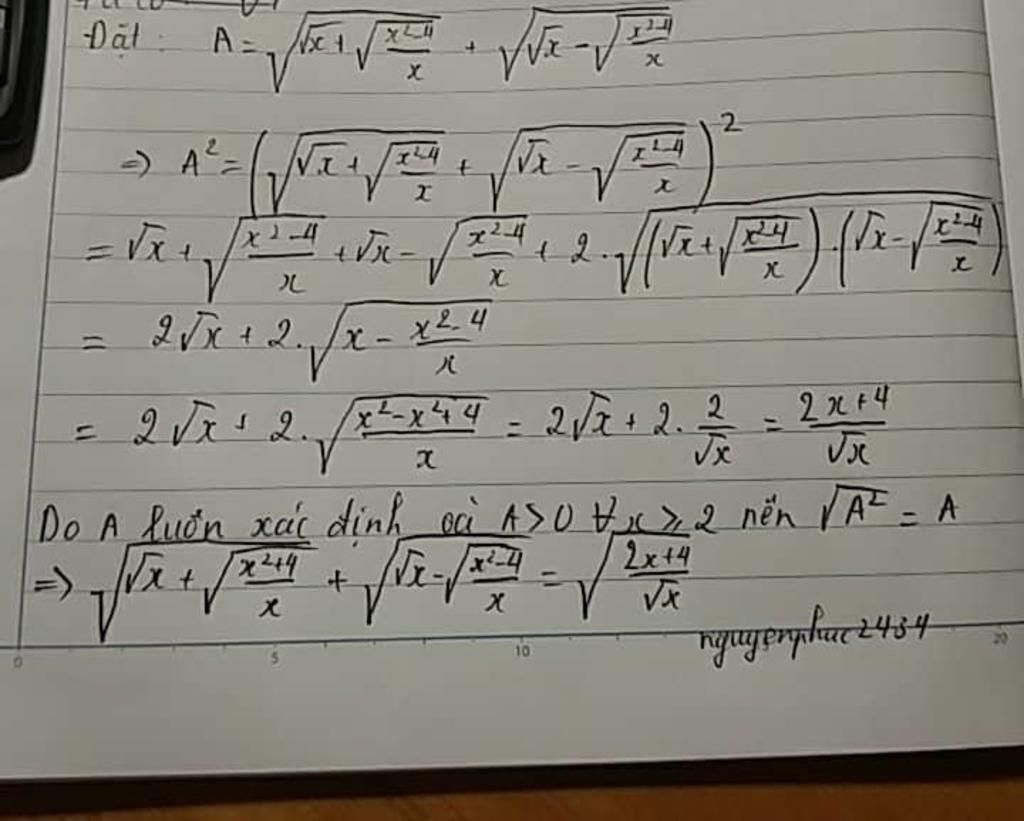 Đặt: A = √(√x + √((x²-4)/x)) + √(√x - √((x²-4)/x))
=> A² = (√(√x + √((x²-4)/x)) + √(√x - √((x²-4)/x)))²
= √x + √((x²-4)/x) + √x - √((x²-4)/x) + 2.√((√x + √((x²-4)/x)).(√x - √((x²-4)/x)))
= 2√x + 2.√(x - (x²-4)/x)
= 2√x + 2.√((x²-x²+4)/x) = 2√x + 2.2/√x = (2x+4)/√x
Do A luôn xác định và A>0 ∀x ⩾ 2 nên √A² = A
=> √(√x + √((x²+4)/x)) + √(√x - √((x²-4)/x)) = √((2x+4)/√x)
nguyenphuc2434
0 5 10 20